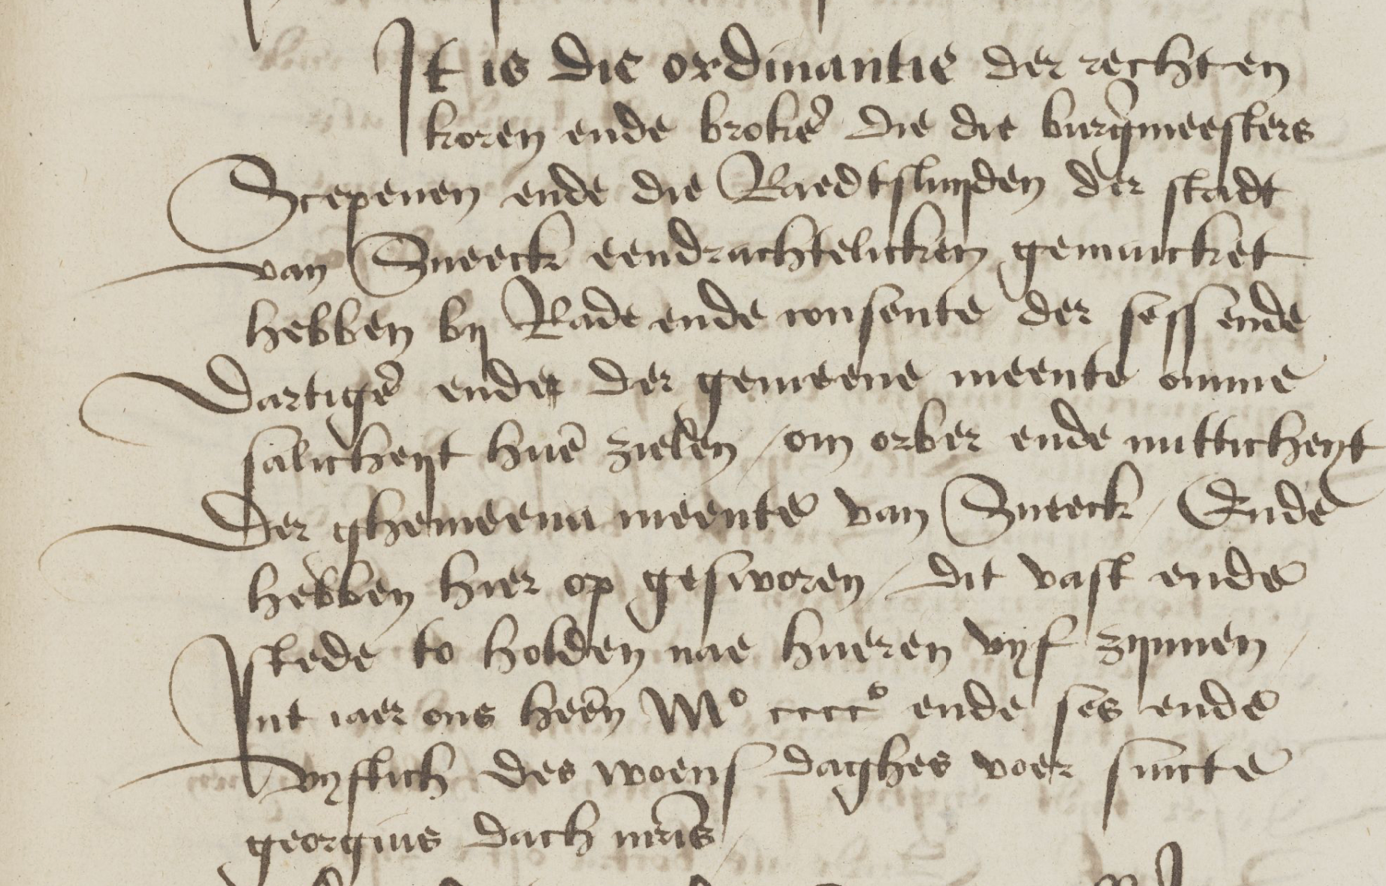 It is die ordinantie der rechten
koren ende broke die die burgmeesters
Scepenen ende die Raedtsluyden der stadt
van Sneeck eendrachtelicken gemaicket
hebben by Rade ende consente der sess ende
dartige ende der gemeene meente omme
salicheyt hue zielen / om orber ende nutticheyt
der ghemeenn meente van Sneeck / Ende
hebben hier op gesworen / dit vast ende
stede to holden nae hueren vyf zynnen /
Int iaer ons heen Mº ccccº ende ses ende
vyftich des woens daghes voer sincte
georgius dach mris /